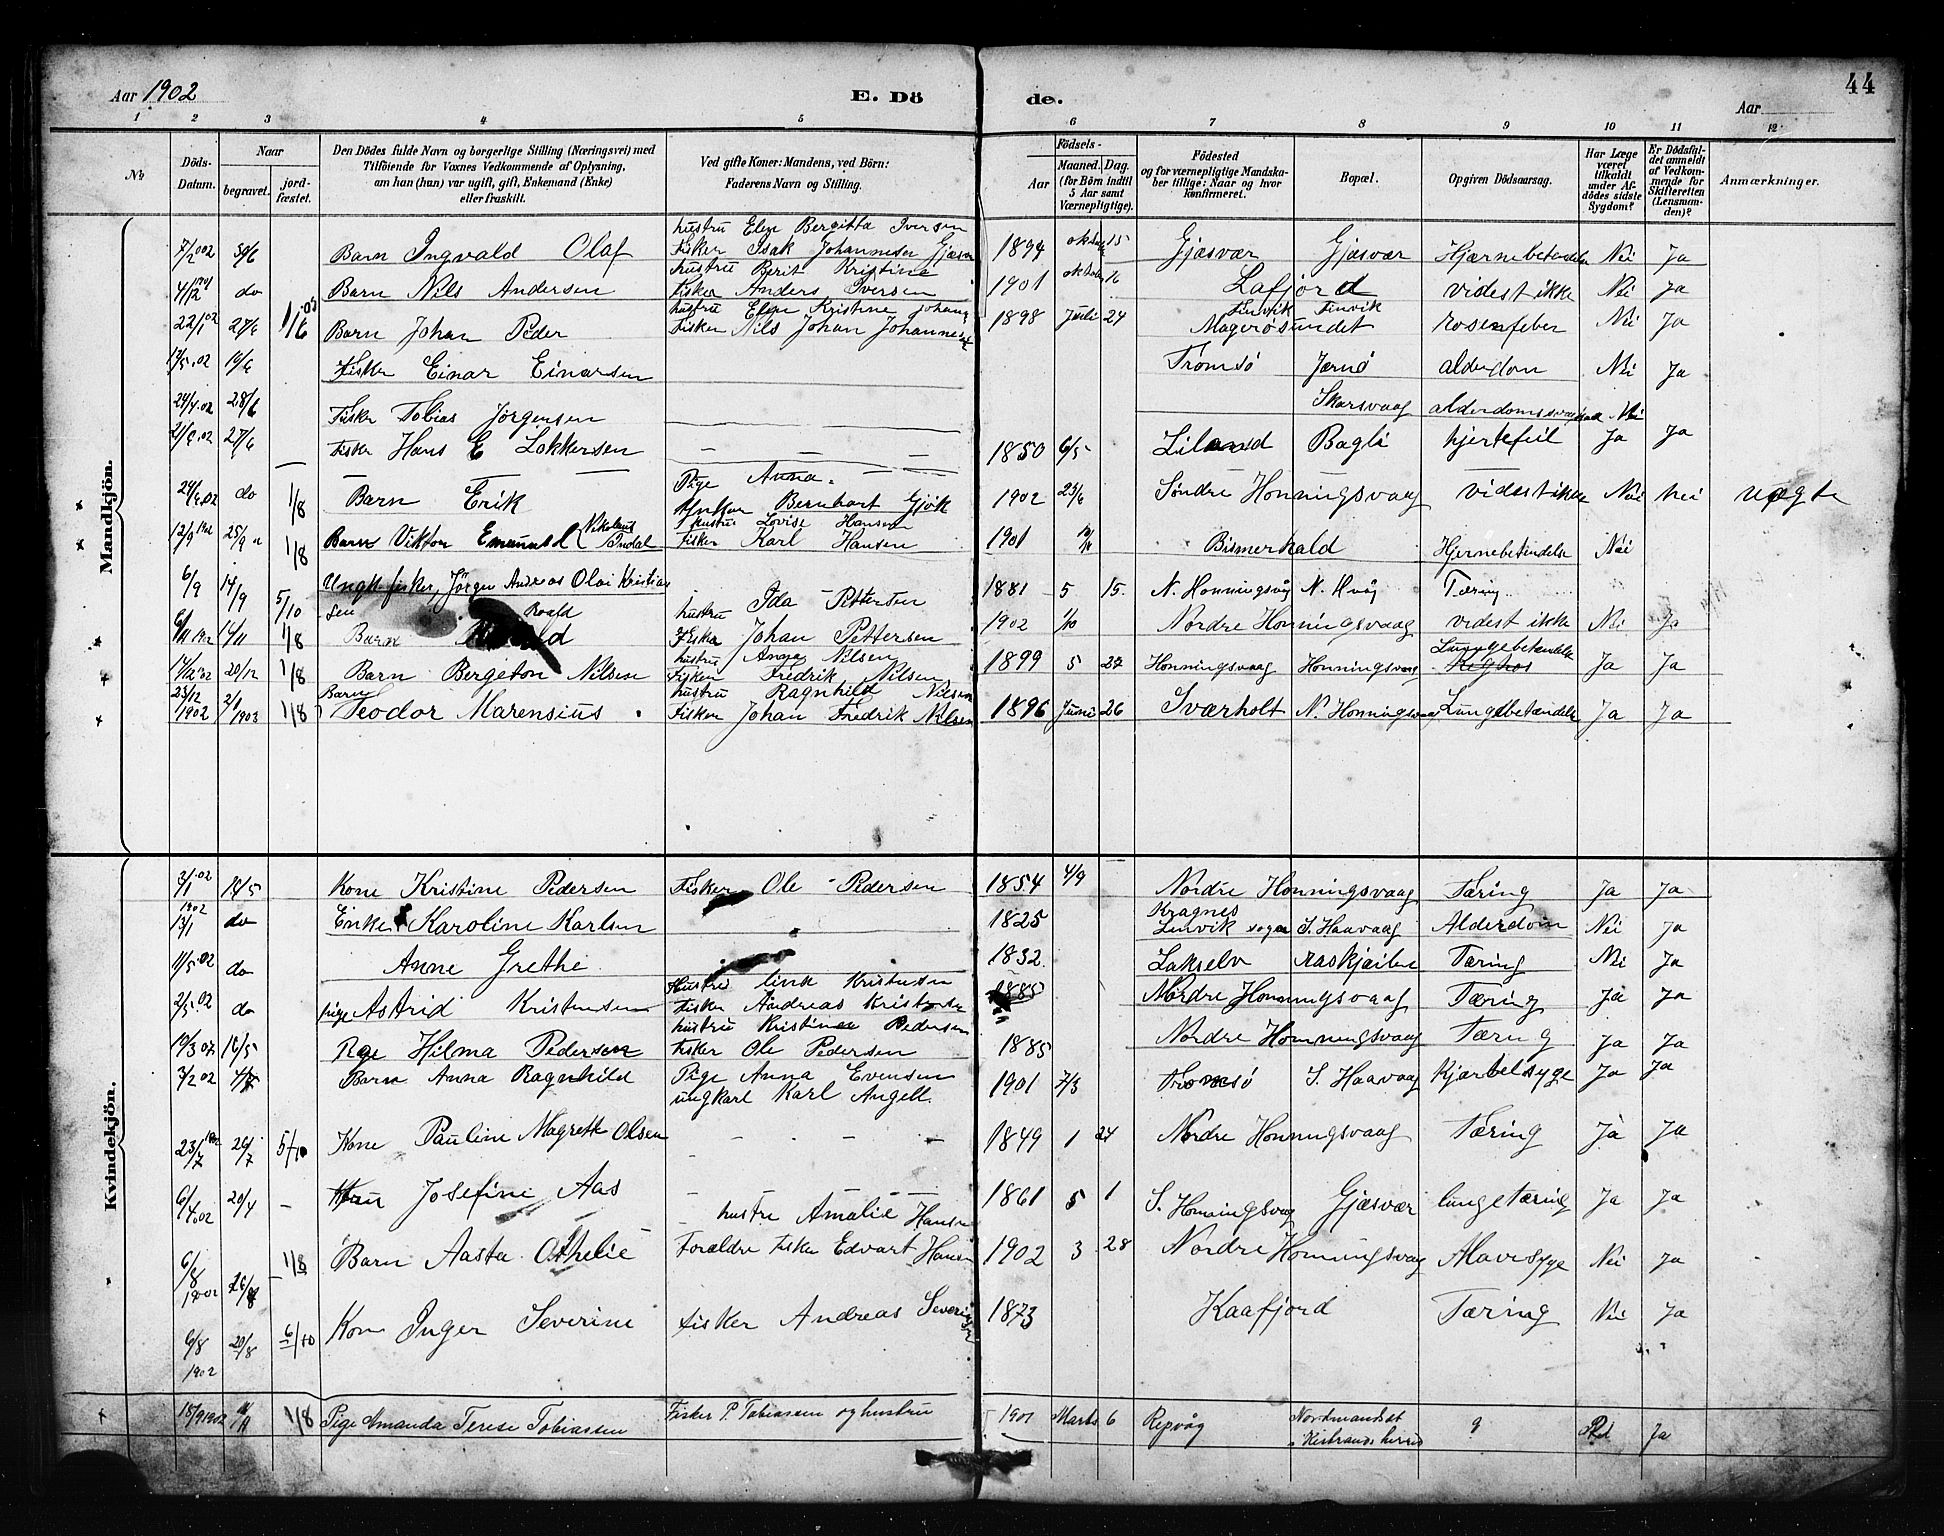 Aar 1902
E. Dö
de.
Aar
44
1 2 3 4 5 6 7 8 9 10 11 12
No
Döds-Datum.
Naar
begravet.
jord-fæstet.
Den Dödes fulde Navn og borgerlige Stilling (Næringsvei) med
Tilföiende for Voxnes Vedkommende af Oplysning,
am han (hun) var ugift, gift, Enkemand (Enke)
eller fraskilt.
Ved gifte Koner: Mandens, ved Börn:
Faderens Navn og Stilling.
Födsels-
Aar
Maaned. Dag.
(for Börn indtil
5 Aar samt
Værnepligtige).
Födested
og for værnepligtige Mandska-
ber tillige: Naar og hvor
konfirmeret.
Bopæl.
Opgiven Dödsaarsag.
Har Læge
været
tilkaldt
under Af-
dödes sidste
Sygdom?
Er Dödsfal-
det anmeldt
af Vedkom-
mende for
Skifteretten
(Lensman-
den)?
Anmærkninger.
Mandkjön.
hustru Elen Bergitta Iversen
7/2 02 30/6 Barn Ingvald Olaf Fisker Isak Johannesen 1894 oktober 15 Gjæsvær Gjæsvær Hjærnebetendelse Nei Ja
hustru Berit Kristine
4/12 1901 do Barn Nils Andersen Fisker Anders Iversen 1901 oktober 16 Lafjord videst ikke Nei Ja
hustru Elen Kristine
22/1 02 27/6 1/6 03 Barn Johan Peder Fisker Nils Johan Johannesen 1898 Juli 24 Magerösundet rosenfeber Nei Ja
19/6 Fisker Einar Einarsen Tromsö Jærnö alderdom Nei Ja
24/4 02 28/6 Fisker Tobias Jörgensen Skarsvaag Nei
27/6 Fisker Hans E Lokkersen 1850 6/5 Liland hjertefeil Ja Ja
Pige Anna
do 1/8 Barn Erik Bernhart Gjök 1902 Söndre Honningsvaag videst ikke Nei Nei uægte
hustru Lovise Hansen
12/9 25/9 1/8 Barn Viktor Emanuel Fisker Karl Hansen 1901 Hjernebetindelse Nei
6/9 14/9 5/10 Ungk. fisker, Jörgen Andreas Olai Kristian
sen 1881 5 15. N. Honningsvåg N. Hvåg Tæring
Roald hustru Ida Pettersen
1/8 Barn Fisker Johan Pettersen 1902 1/10 Nordre Honningsvaag videst ikke Nei Ja
hustru Anna Nilsen Lungebetendelse
20/12 1/8 Barn Bergeton Nilsen Fisker Fredrik Nilsen 1899 5 27 Honningsvaag Honningsvaag Ja Ja
Barn hustru Ragnhild Nilsen
23/12 1902 2/1 1903 1/8 Teodor Marensius Fisker Johan Fredrik Nilsen 1896 Juni 26 Sværholt N. Honningsvaag Lungebetændelse Ja Ja
Kvindekjön.
3/1 02 18/5 Kone Kristine Pedersen Fisker Ole Pedersen 1854 4/9 Nordre Honningsvaag Tæring Ja Ja
13/1 1902 do Enke Karoline Karlsen 1825 Kragnes
Lenvik sogn S. Haavaag Alderdom Nei Ja
11/5 02 do Anne Grethe 1832 Lakselv Tæring Nei Ja
2/5 02 do Pige Astrid Kristensen Fisker Andreas 1885 Nordre Honningsvaag Tæring Ja Ja
hustru Kristine Pedersen
19/3 02 18/5 Pige Hilma Pedersen Fisker Ole Pedersen 1885 Nordre Honningsvaag Tæring Ja Ja
3/2 02 Barn Anna Ragnhild Pige Anna Evensen
ungkarl Karl Angell. 1901 7/3 Tromsö S. Haavaag Kjærtelsyge Ja Ja
23/7 1902 26/7 5/10 Kone Pauline Magrete Olsen 1849 1 24 Nordre Honningsvaag Tæring Ja Ja
6/4 02 20/4 Josefine Aas 1861 5 1 S. Honningsvaag Gjæsvær lungetæring Ja Ja
hustru Amalie Hansen
6/8 1902 26/8 1/8 Barn Aasta Othelie Forældre Fisker Edvart Hansen 1902 3 28 Nordre Honningsvaag Mavesyge Nei Ja
6/8 1902 20/8 6/10 Kone Inger Severine fisker Andreas Severinsen 1873 Kaafjord Tæring Nei Ja
18/9 1902 1/8 Pige Amanda Terese Tobiassen Fisker P. Tobiassen og hustru 1901 Marts 6 Repvåg Nordmandset
i Kistrands herred ? Ja